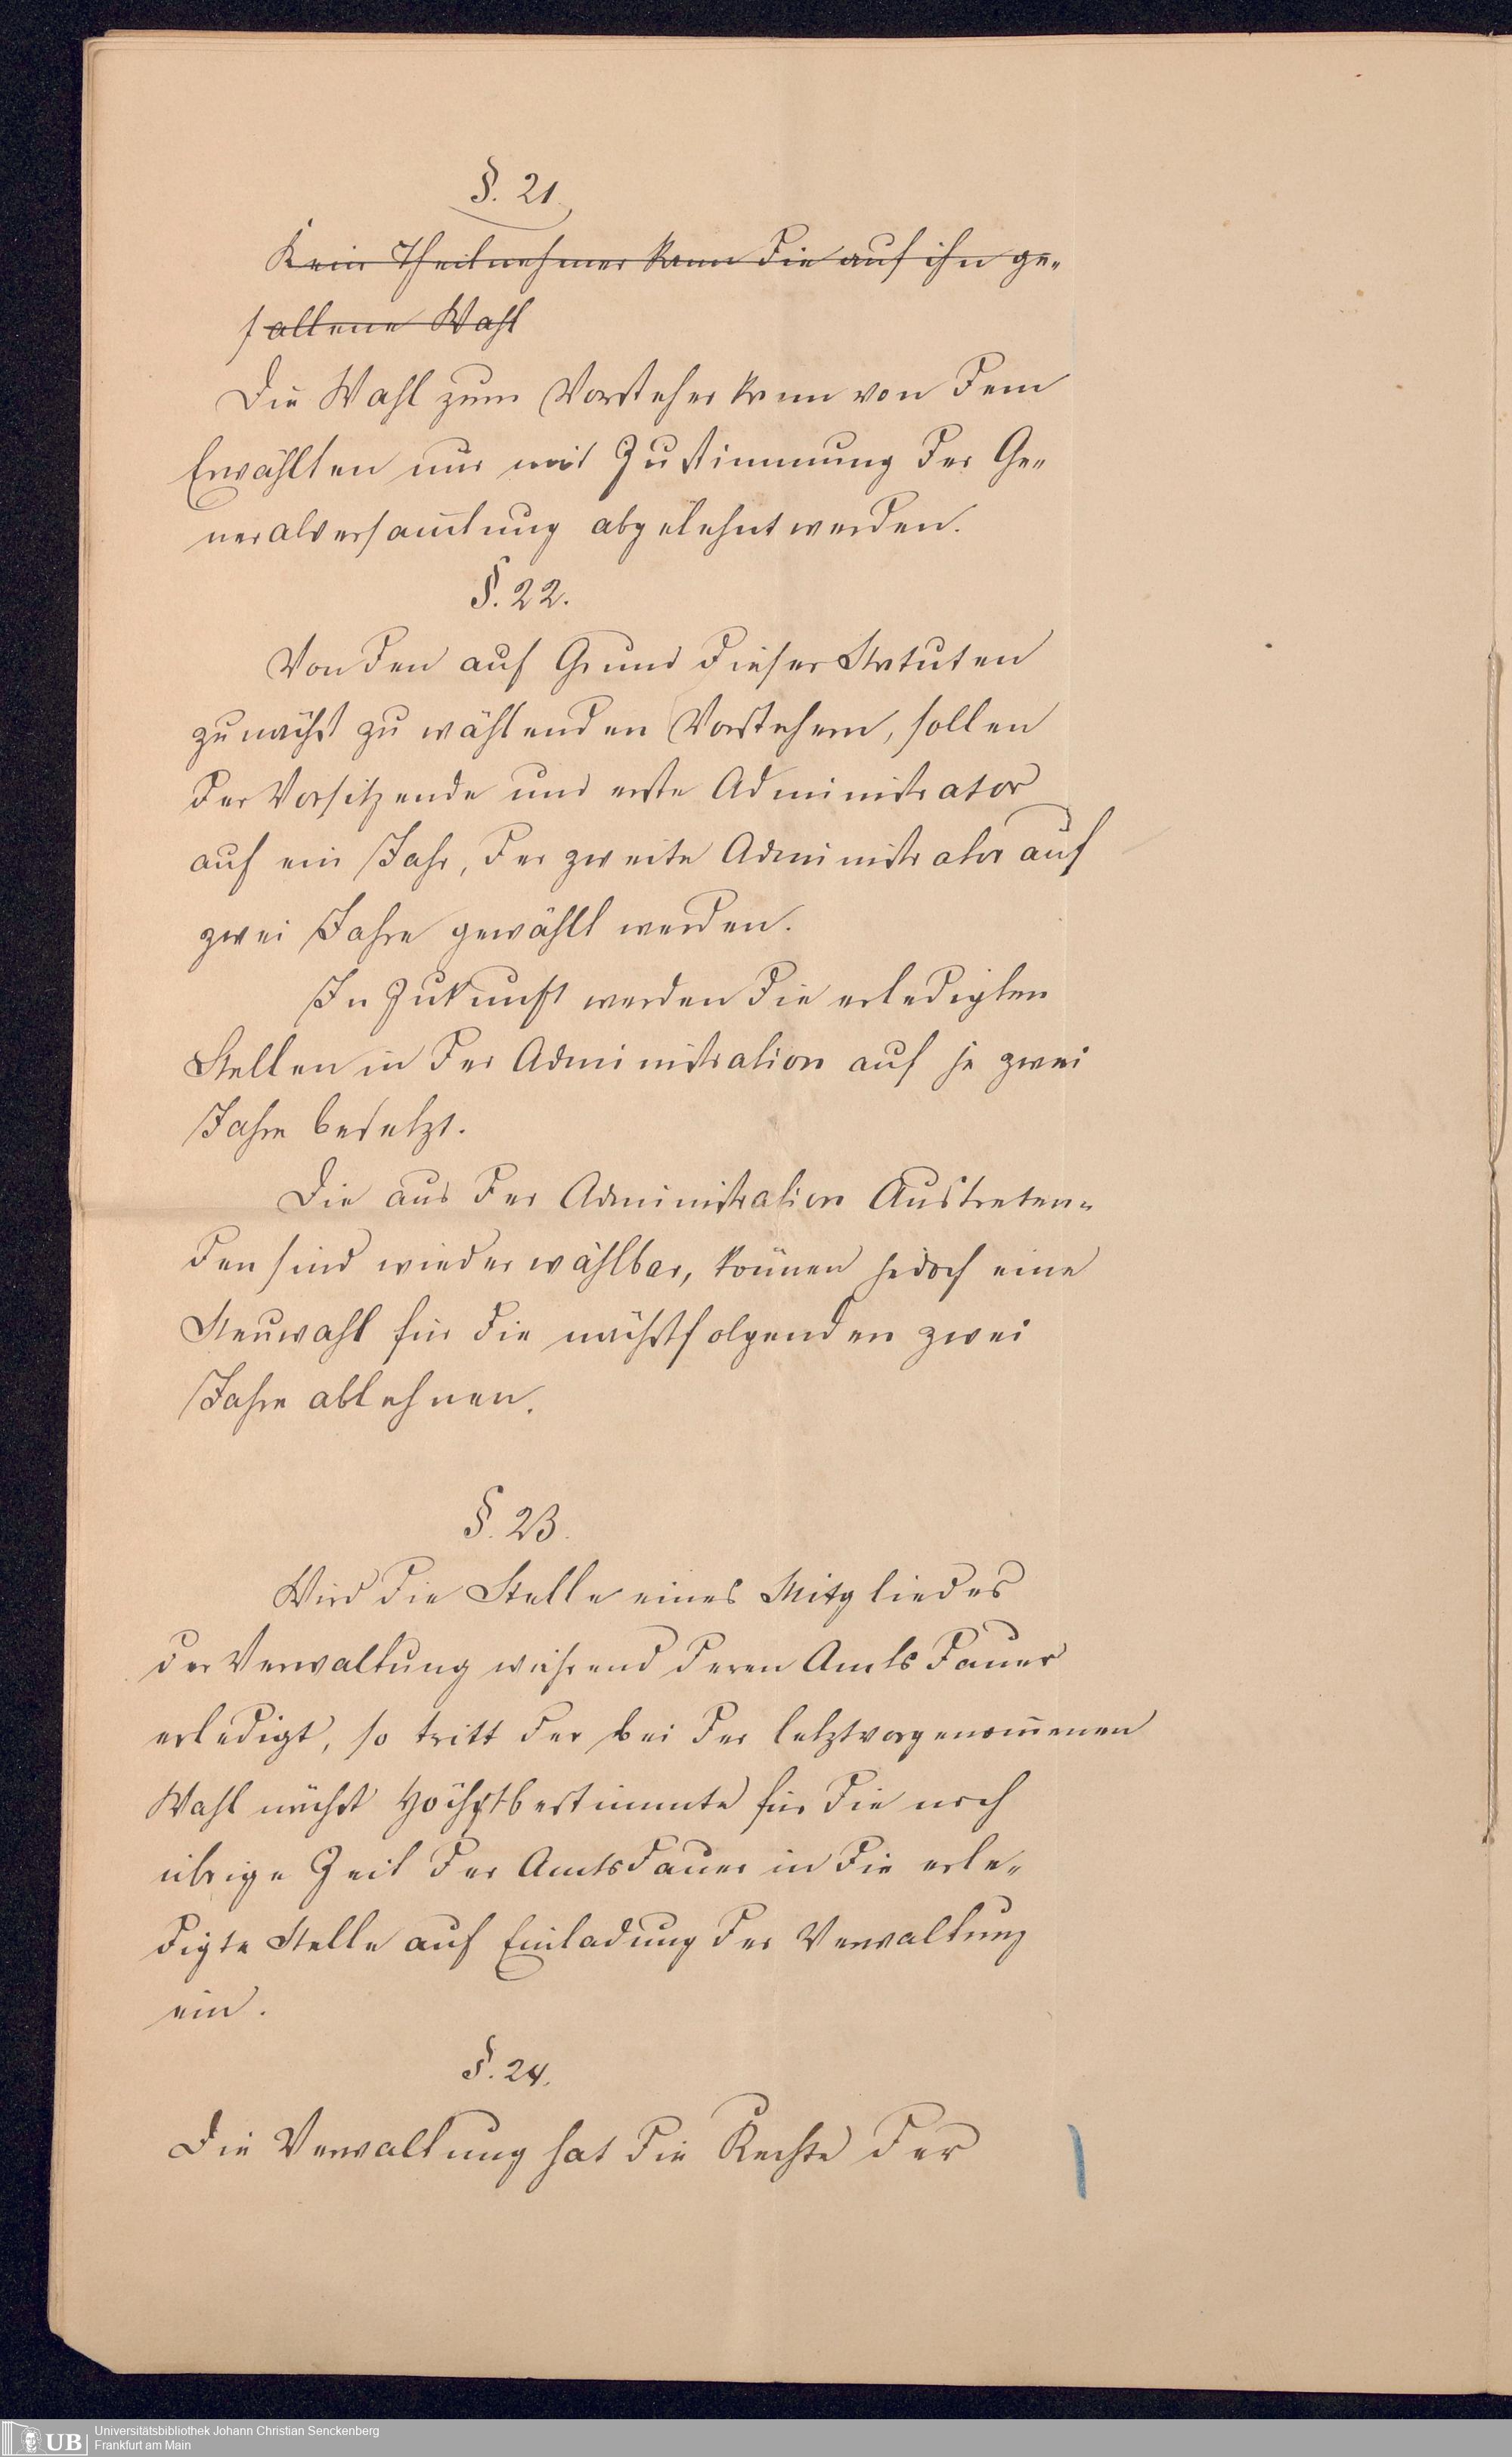 §. 21
Kein Theilnehmer kann die auf ihn ge-
fallene Wahl
Die Wahl zum Vorsteher kann von dem
Erwählten nur mit Zustimmung der Ge-
neralversam̅lung abgelehnt werden.
§. 22.
Von den auf Grund dieser Statuten
zunächst zu wählenden Vorstehern, sollen
der Vorsitzende und erste Administrator
auf ein Jahr, der zweite Administrator auf
zwei Jahre gewählt werden.
In Zukunft werden die erledigten
Stellen in der Administration auf je zwei
Jahre besetzt.
Die aus der Administration Austreten-
den sind wieder wählbar, können jedoch eine
Neuwahl für die nächstfolgenden zwei
Jahre ablehnen.
§. 23.
Wird die Stelle eines Mitgliedes
der Verwaltung während deren Amtsdauer
erledigt, so tritt der bei der letztvorgenom̅enen
Wahl nächst Höchstbestimmte für die noch
übrige Zeit der Amtsdauer in die erle-
digte Stelle auf Einladung der Verwaltung
ein.
§. 24.
Die Verwaltung hat die Rechte der
UB
Universitätsbibliothek Johann Christian Senckenberg
Frankfurt am Main